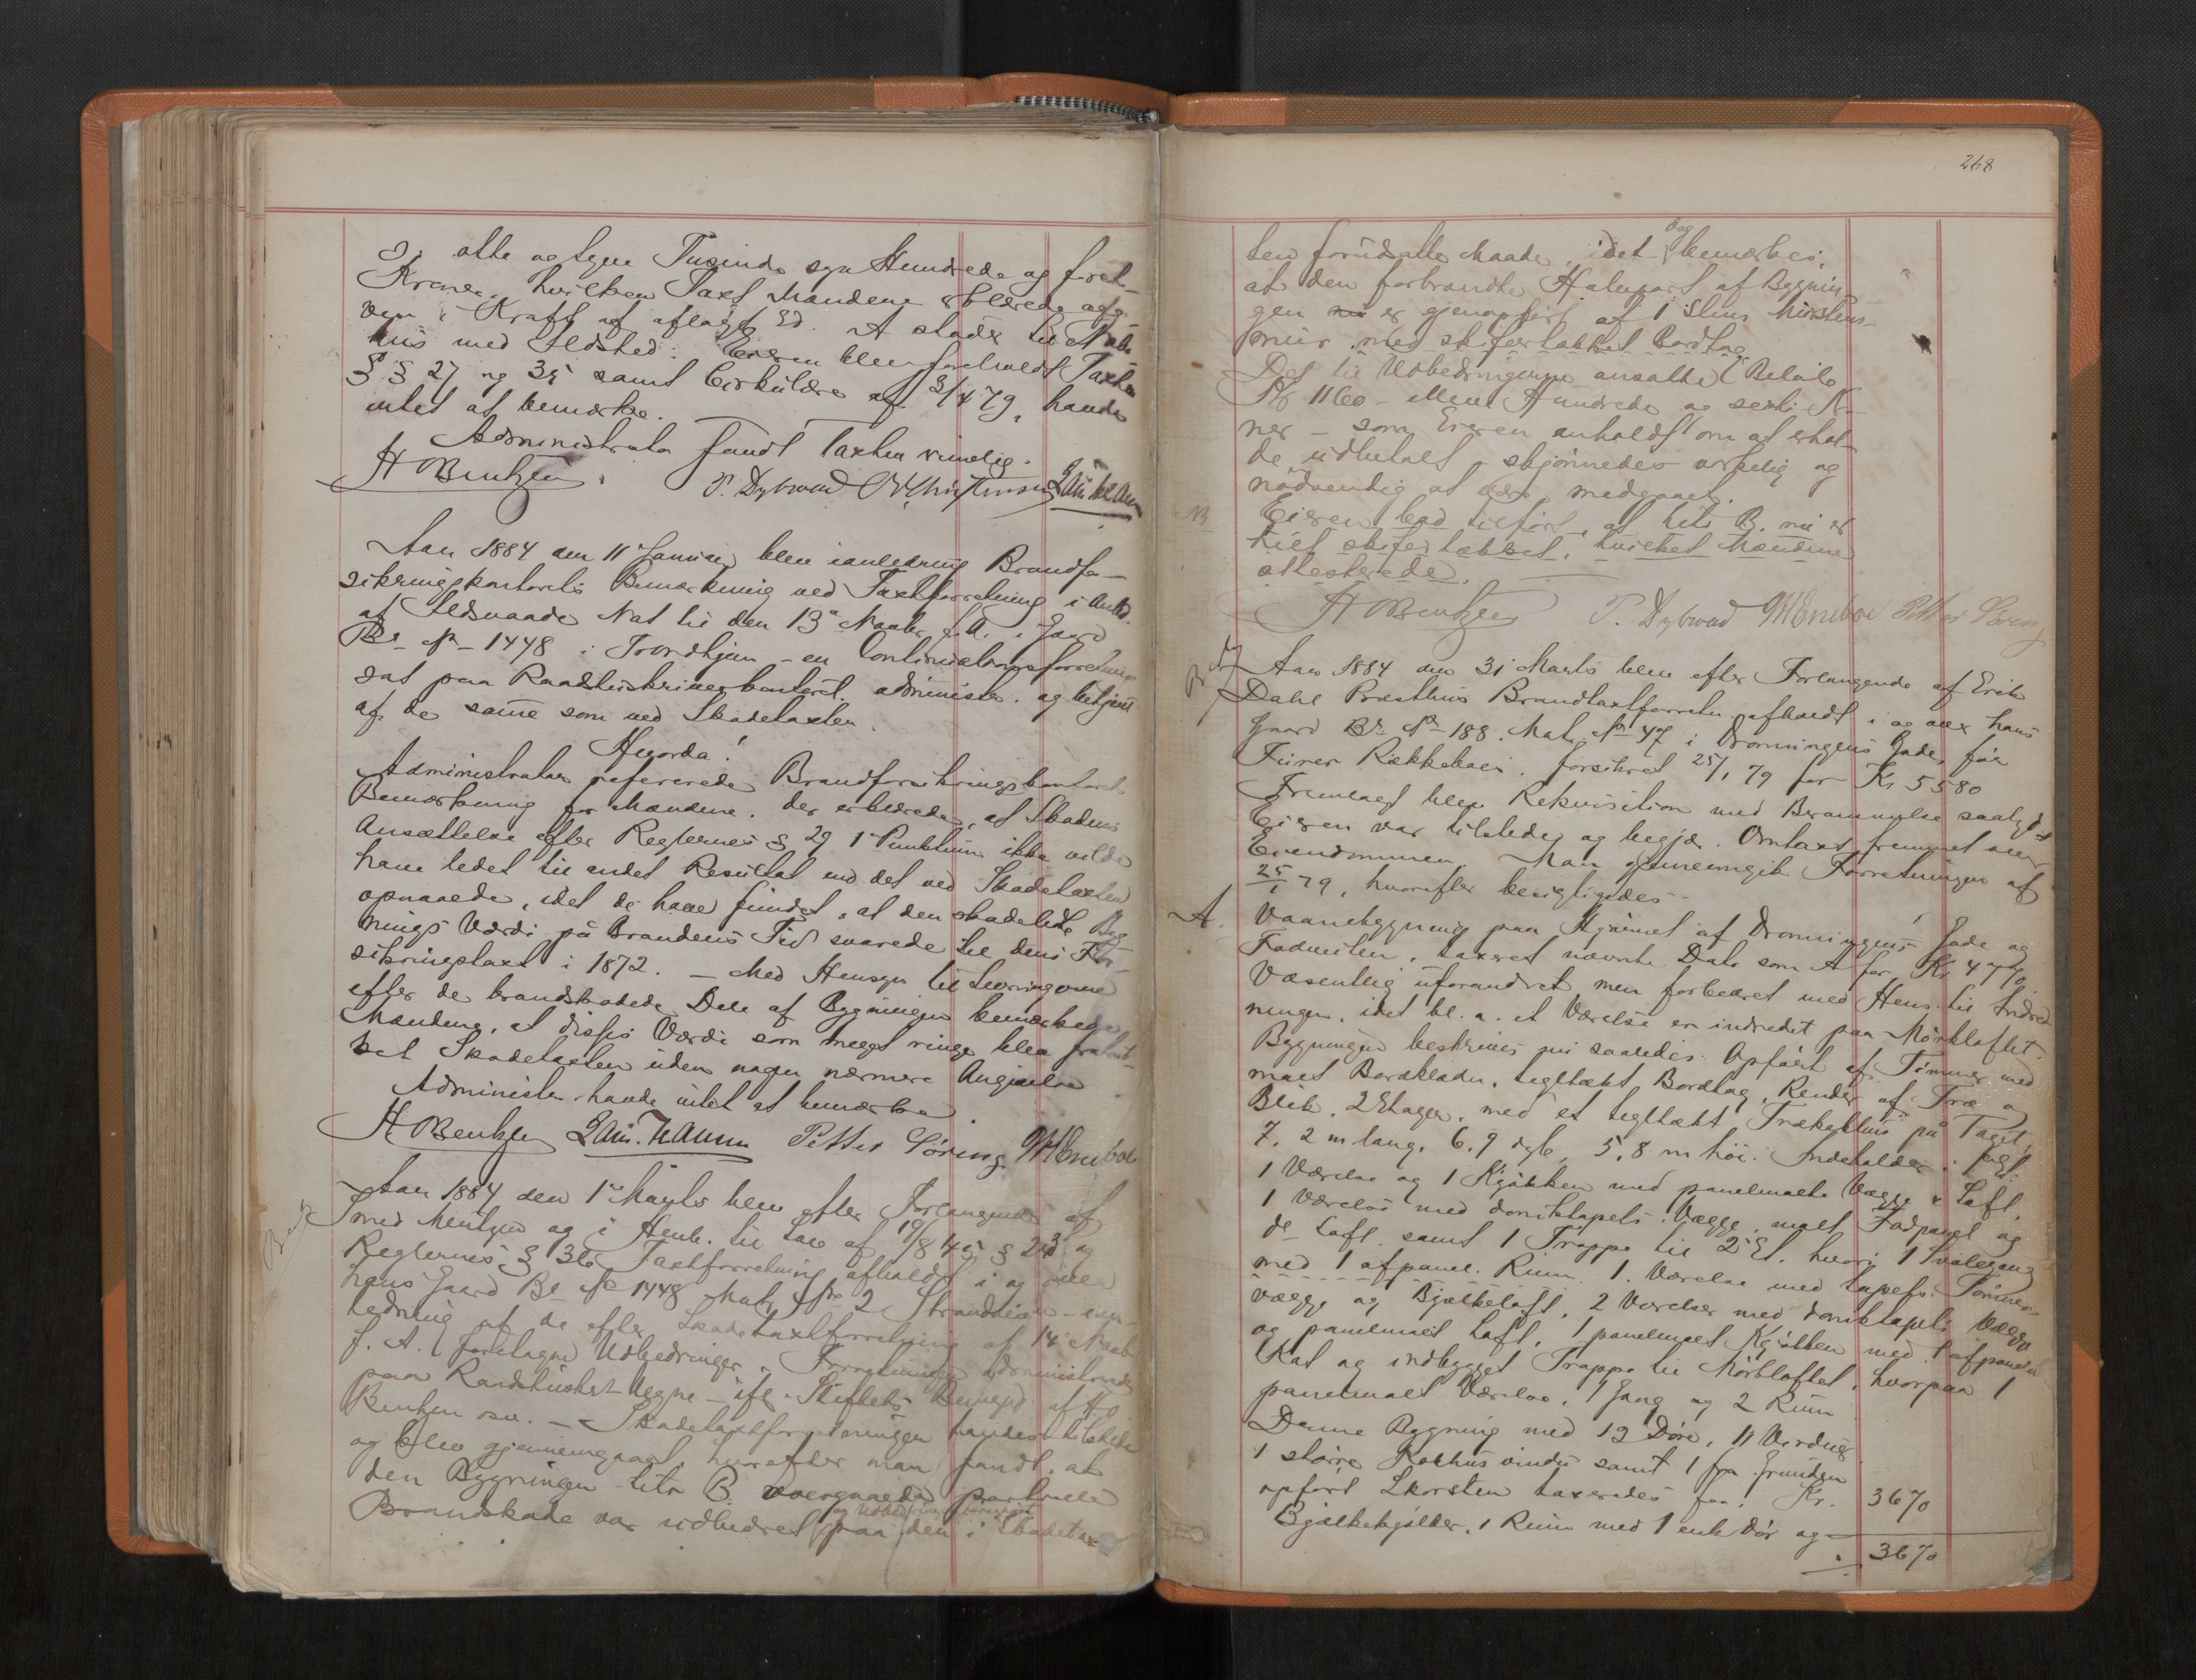 er otte og tyve Tusinde syv Hundrede og foreti
Kroner, hvilken Taxt Mændene erklærede afg.
ven i Kraft af aflagt Ed. A støder til et
hus med Ildsted. Eieren blev foreholdt Taxtl.
§ § 27 og 35 samt Cirkulære af 3/4 79, havde
intet at bemærke.
Administrator fandt Taxten rimelig.
H Bentzen P. Dybwad O Christensen Lau. Haum
Aar 1884 den 11 Januar blev ianledning Brandfor-
sikringskontorets Bemærkning ved Taxtforretning i Anled.
af Ildsvaade Nat til den 13de Novbr. f. A. i Gaard
Br. No 1448 i Trondhjem - en Continuationsforretning
sat paa Raadstueskriverkontoret administr. og betjent
af de samme som ved Skadetaxten.
Hvorda!
Administrator refererede Brandforsikringskontorets
Bemærkning for Mændene, der erklærede, at Skadens
Ansættelse efter Reglernes § 29 1ste Punktum ikke vilde
have ledet til andet Resultat end det ved Skadetaxten
opnaaede, idet de have fundet, at den skadelidte Byg
nings Værdi på Brandens Tid svarede til dens For-
sikringstaxt i 1872. - Med Hensyn til Levningerne
efter de brandskadede Dele af Bygningen bemærkede
Mændene, at disses Værdi som meget ringe blev fratruk
ket Skadetaxten uden nogen nærmere Angivelse
Administr. havde intet at bemærke
H Bentzen Lau. Haum Petter Søring M Emiboe
Aar 1884 den 1ste Marts blev efter Forlangende af
Smed Mentzen og i Henh. til Lov af 19/8 45 § 23 og
Reglernes § 36 Taxtforretning afholdt i og over
hans Gaard Br No 1448 Matr. No 2 Strandveien - i an-
ledning af de efter Skadetaxtforretning af 14de Novbr
f. A. foretagne Udbedringer. Forretningen administreredes
paa Raadstuerets Vegne - ifl. Stiftets Bemynd. af Ho
Bentzen osv. - Skadetaxtforretningen havdes tilstede
og blev gjennemgaaet, hvorefter man fandt, at
den Bygningen litr B. overgaaede partielle
og Udbedringer foretaget
Brandskade var udbedret paa den i Skadetax
268
ten forudsatte Maade, idet dog bemærkes,
at den forbrændte Halvpart af Bygnin
gen er gjenopført af 1 Stens Mursten-
mur med skifertækket Bordtag
Det til Udbedringerne ansatte Beløb
Kr 1160 - elleve Hundrede og sexti Kr-
ner - som Eieren anholdt om at erhol-
de udbetalt, skjønnedes virkelig og
nødvendig at være medgaaet.
NB Eieren bad tilført, at litr B. nu er
helt skifertækket, hvilket Mændene
attesterede.
H Bentzen P. Dybwad M Emiboe Petter Søring
Aar 1884 den 31 Marts blev efter Forlangende af Erik
Dahl Præsthus Brandtaxtforretn. afholdt i og over hans
Gaard Br No 188. Matr. No 47 i Dronningens Gade, før
Fiirer Rækkebaes. forsikret 25/1 79 for Kr 5580
Fremlagt blev Rekvisition med Berammelse saalydt
Eieren var tilstede og begjær. Omtaxt fremmet over
Eiendommen. Man gjennemgik Forretningen af
25/1 79, hvorefter besigtigedes
A. Vaanebygning paa Hjørnet af Dronningens Gade og
Ladveiten, taxeret nævnte Dato som A for Kr 4770.
Væsentlig uforandret men forbedret med Hens. til Indred
ningen, idet bl. a. et Værelse er indredet paa Mørkloftet.
Bygningen beskrives nu saaledes: Opført af Tømmer med
malt Bordklædn., tegltækt Bordtag, Render af Træ og
Blik. 2 Etager, med et tegltækt Trækakhus på Taget,
7, 2 m lang, 6, 9 dyb, 5, 8 m høi. Indeholder i følgt.
1 Værelse og 1 Kjøkken med panelmalte Vægge & Loft,
1 Værelse med doniktapets. Vægge, malt Fodpanel og
do Loft samt 1 Trappe til 2 Et. hvori 1 Svalegang
med 1 afpanel. Rum. 1 Værelse med tapets. Tømmer-
vægge og Bjælkeloft, 2 Værelser med doniktapets Vægge
og panelmalt Loft, 1 panelmalt Kjøkken med 1 afpanelet
Kot og indbygget Trappe til Mørkloftet, hvorpaa 1
panelmalt Værelse, 1 Gang og 2 Rum
Denne Bygning med 12 Døre, 11 Vinduer
1 større Kvisthusvindu samt 1 fra Grunden
opført Skorsten taxeredes for Kr. 3670
Bjælkekjælder, 1 Rum med 1 enk Dør og
3670